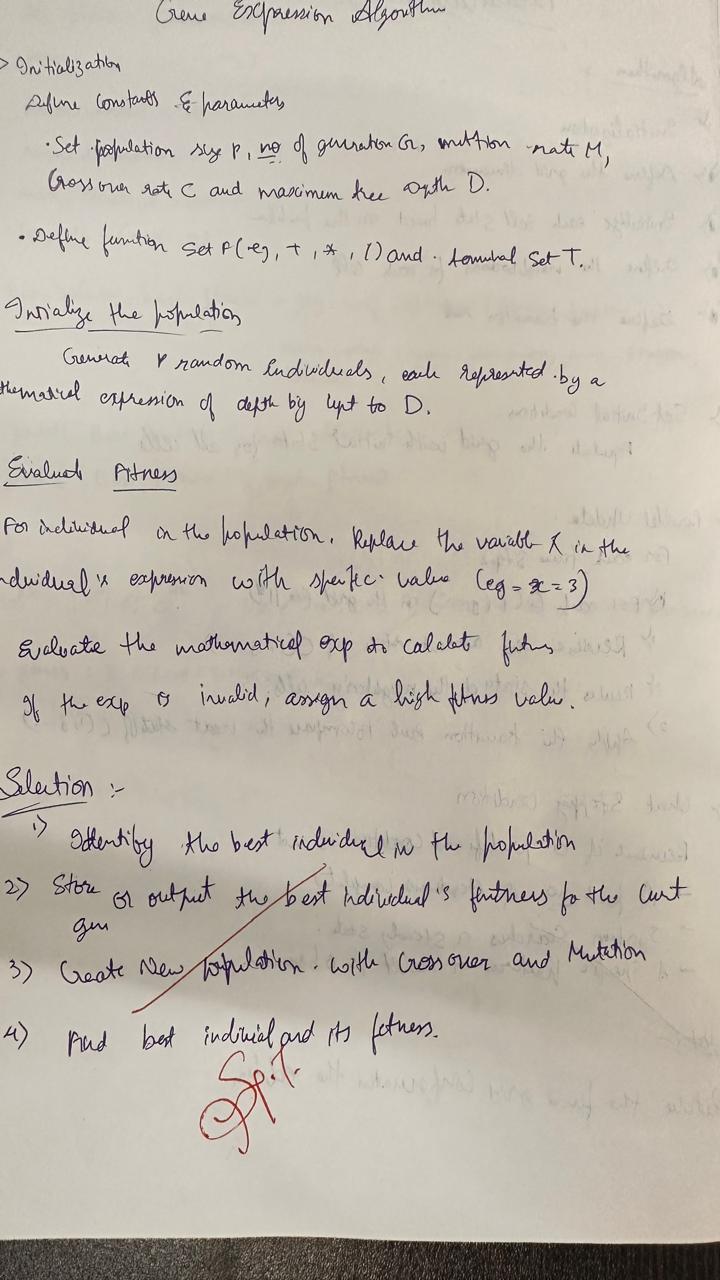 Gene Expression Algorithm
> Initialization
Define Constants & parameters
• Set population size P, no of generation G, muttion rate M,
Crossover rate C and maximum tree depth D.
• Define function set F(eg, +, *, /) and terminal Set T.
Initialize the population
Generate P random individuals, each represented by a
thematical expression of depth by upt to D.
Evaluate Fitness
For individual in the population, Replace the variable X in the
ndividual's expression with specific value (eg = x = 3)
Evaluate the mathematical exp to calculate fitness
If the exp is invalid, assign a high fitness value.
Selection :-
1) Identify the best individual in the population
2) Store or output the best individual's fitness for the curt
gen
3) Create New population. with Crossover and Mutation
4) Find best individual and its fitness.